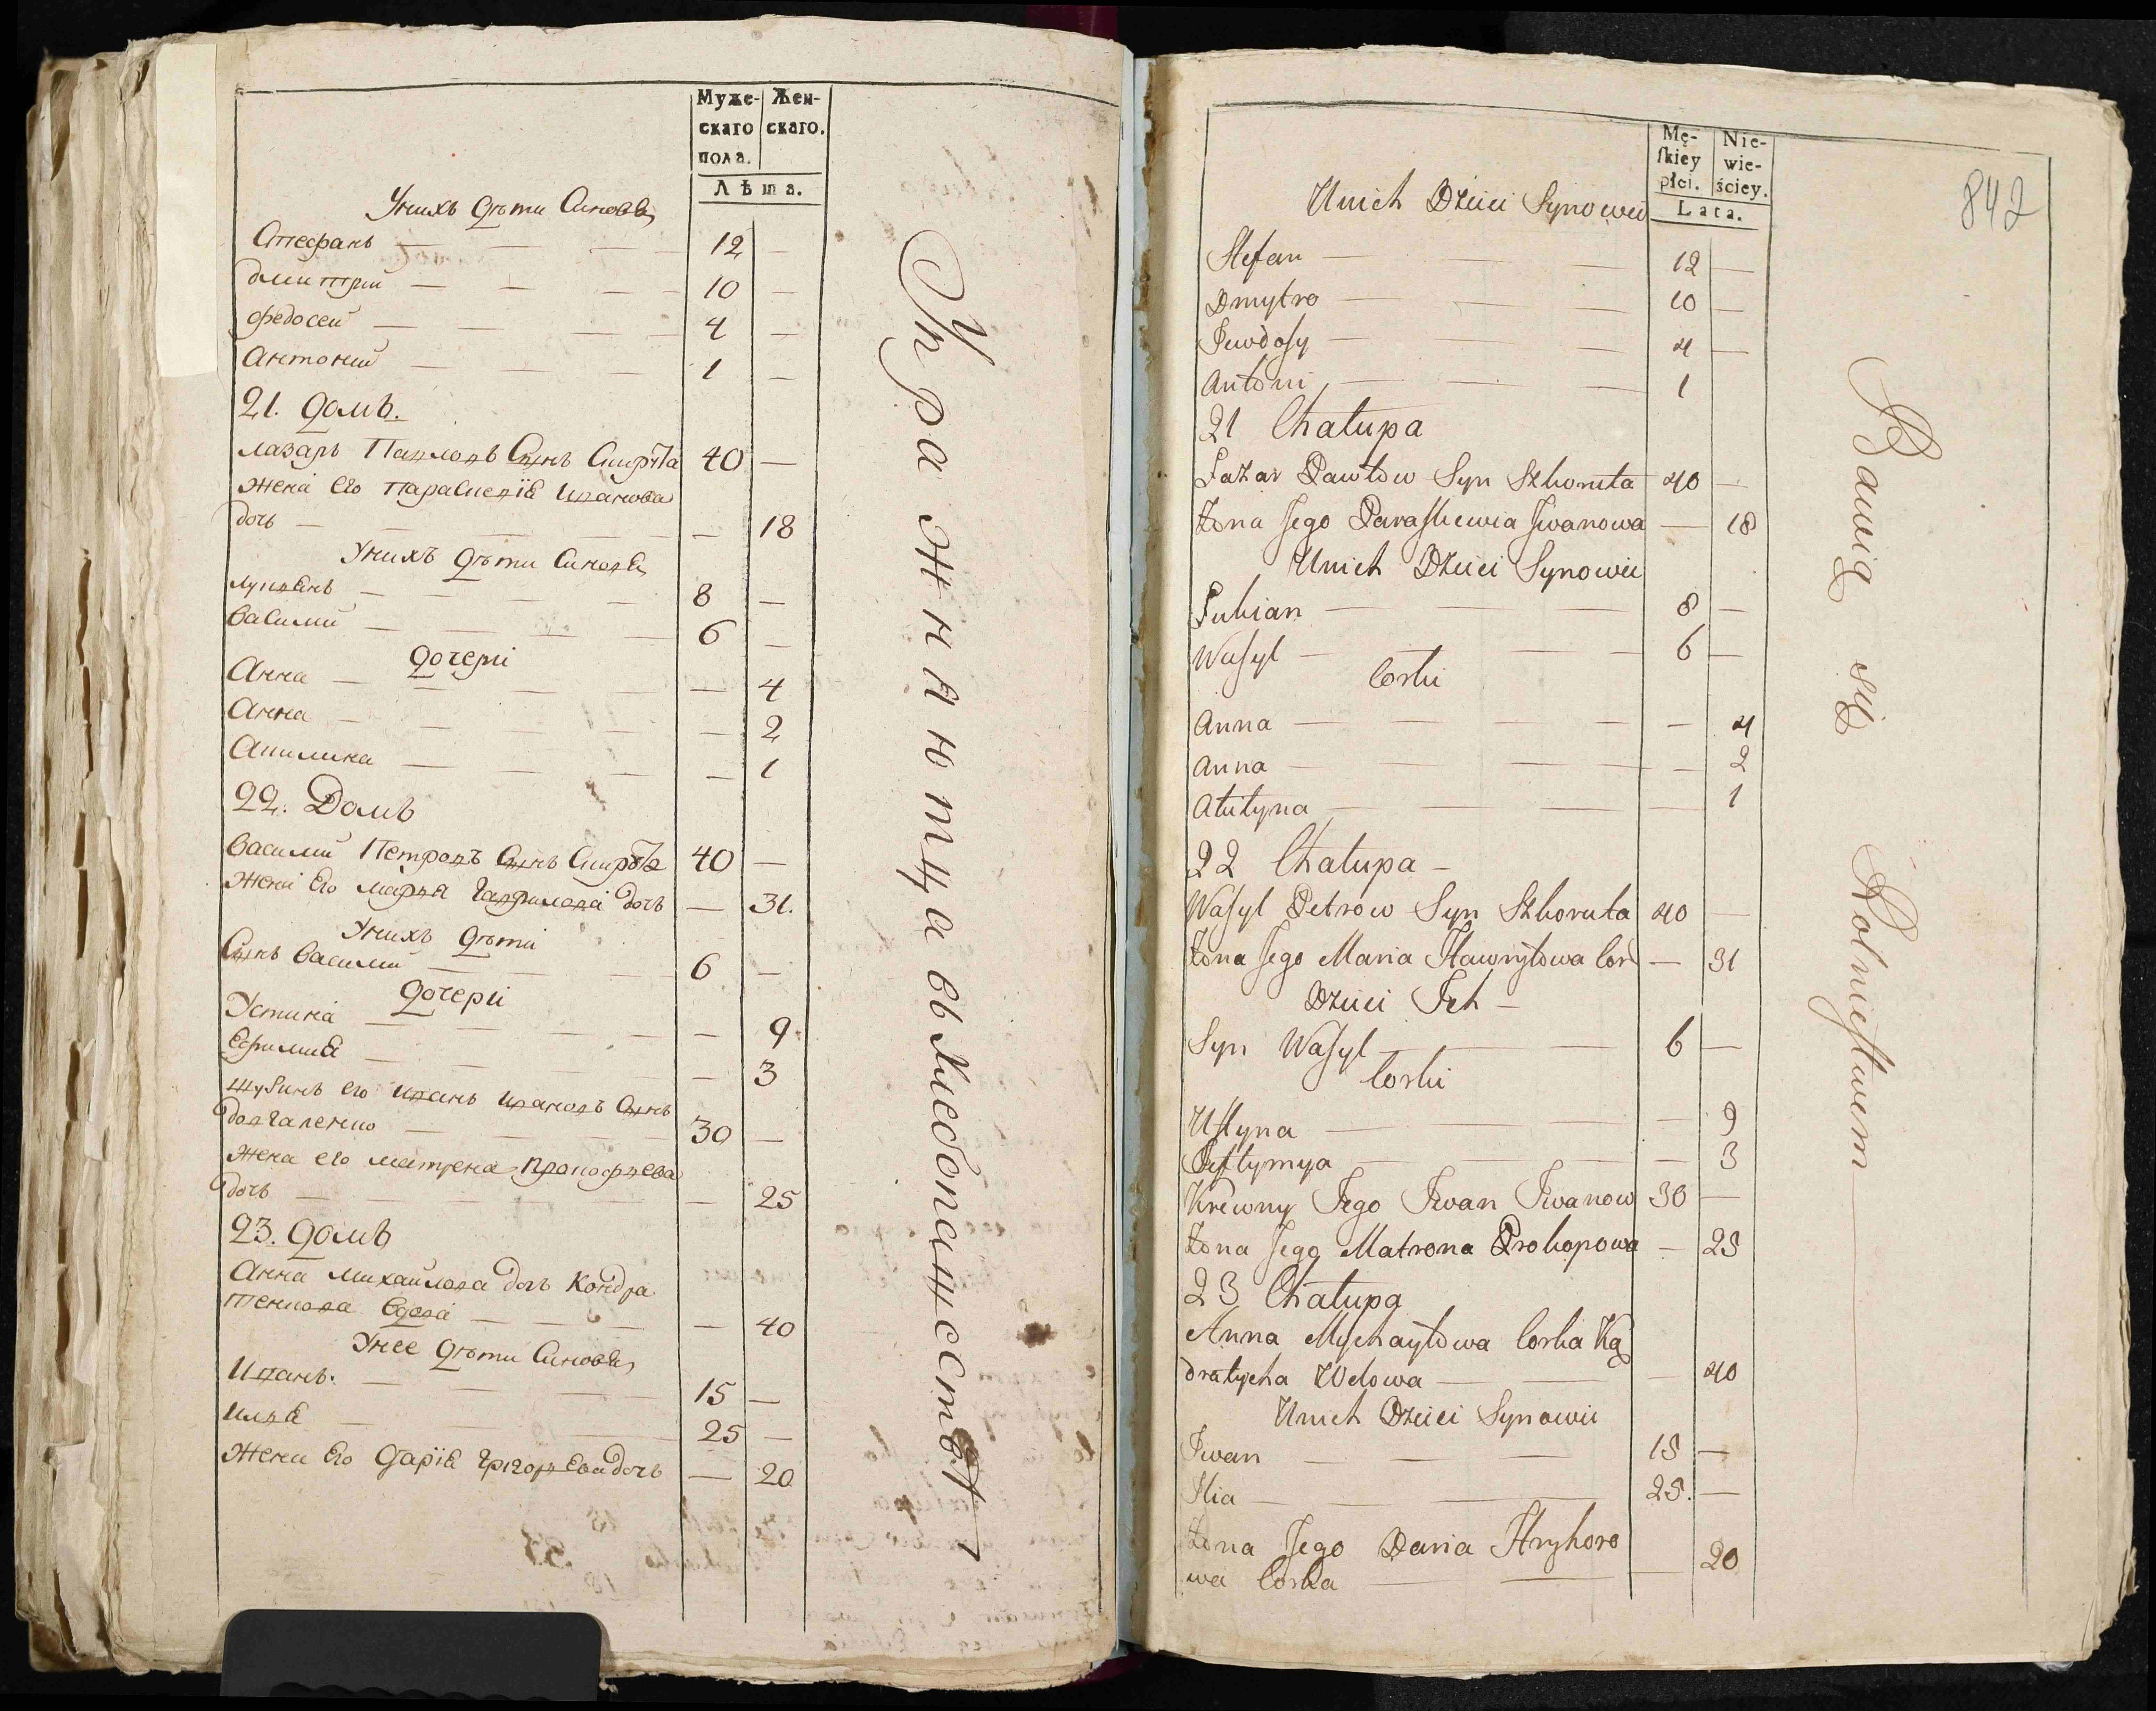 Муже-
скаго
пола.
Жен-
скаго.
Лѣта.
Унихъ дѣти Синовѣ
Стефанъ — 12 —
Дмитрій — 10 —
Федосей — 4 —
Антоній — 1 —
21. домъ.
Лазарь Павловъ Сынъ 40 —
жена его Параскевіа Иванова
дочь — 18
Унихъ дѣти Синовѣ
Лукіанъ — 8 —
Василий — 6 —
дочери
Анна — 4
Анна — 2
Акилина — 1
22. Домъ
Василий Петровъ Сынъ 40 —
жена его Мариа Гаврилова дочь — 31.
Унихъ дѣти
Сынъ Василий — 6 —
дочери
Устина — 9
Ефимиа — 3
его Иванъ Ивановъ Сынъ
30 —
жена его Матрена Прокофьева
дочь — 25
23. домъ
Анна Михайлова дочь Кондра
тенкова вдова — 40
Унее дѣти Синовѣ
Иванъ. — 15 —
Илиа — 25 —
жена его Дариа Григорьева дочь — 20
Упражняютца въ хлебопашествѣ
842
Mę-
ſkiey
płci.
Nie-
wie-
ściey.
Lata.
Unich Dzieci Synowie
Stefan — 12 —
Dmytro — 10 —
Fewdoſy — 4 —
Antoni — 1
21 Chałupa
Łazar Pawłow Syn Skoruta 40 —
Żona Jego Paraſkewia Jwanowa — 18
Unich Dzieci Synowie
Łukian — 8 —
Waſyl — 6 —
Corki
Anna — 4
Anna — 2
Akilyna — 1
22 Chałupa —
Waſyl Petrow Syn Skoruta 40 —
Żona Jego Maria Hawryłowa Cor — 31
Dzieci Ich —
Syn Waſyl — 6 —
Corki
Uſtyna — 9
— 3
Krewny Jego Iwan Iwanow 30 —
Żona Jego Matrona Prokopowa — 25
23 Chałupa
Anna Mychayłowa Corka Ką
dratycha Wdowa — 40
Unich Dzieci Synowie
Iwan — 15 —
Ilia — 25. —
Żona Jego Daria Hryhoro
wa Corka — 20
Bawią się Rolnieſtwem